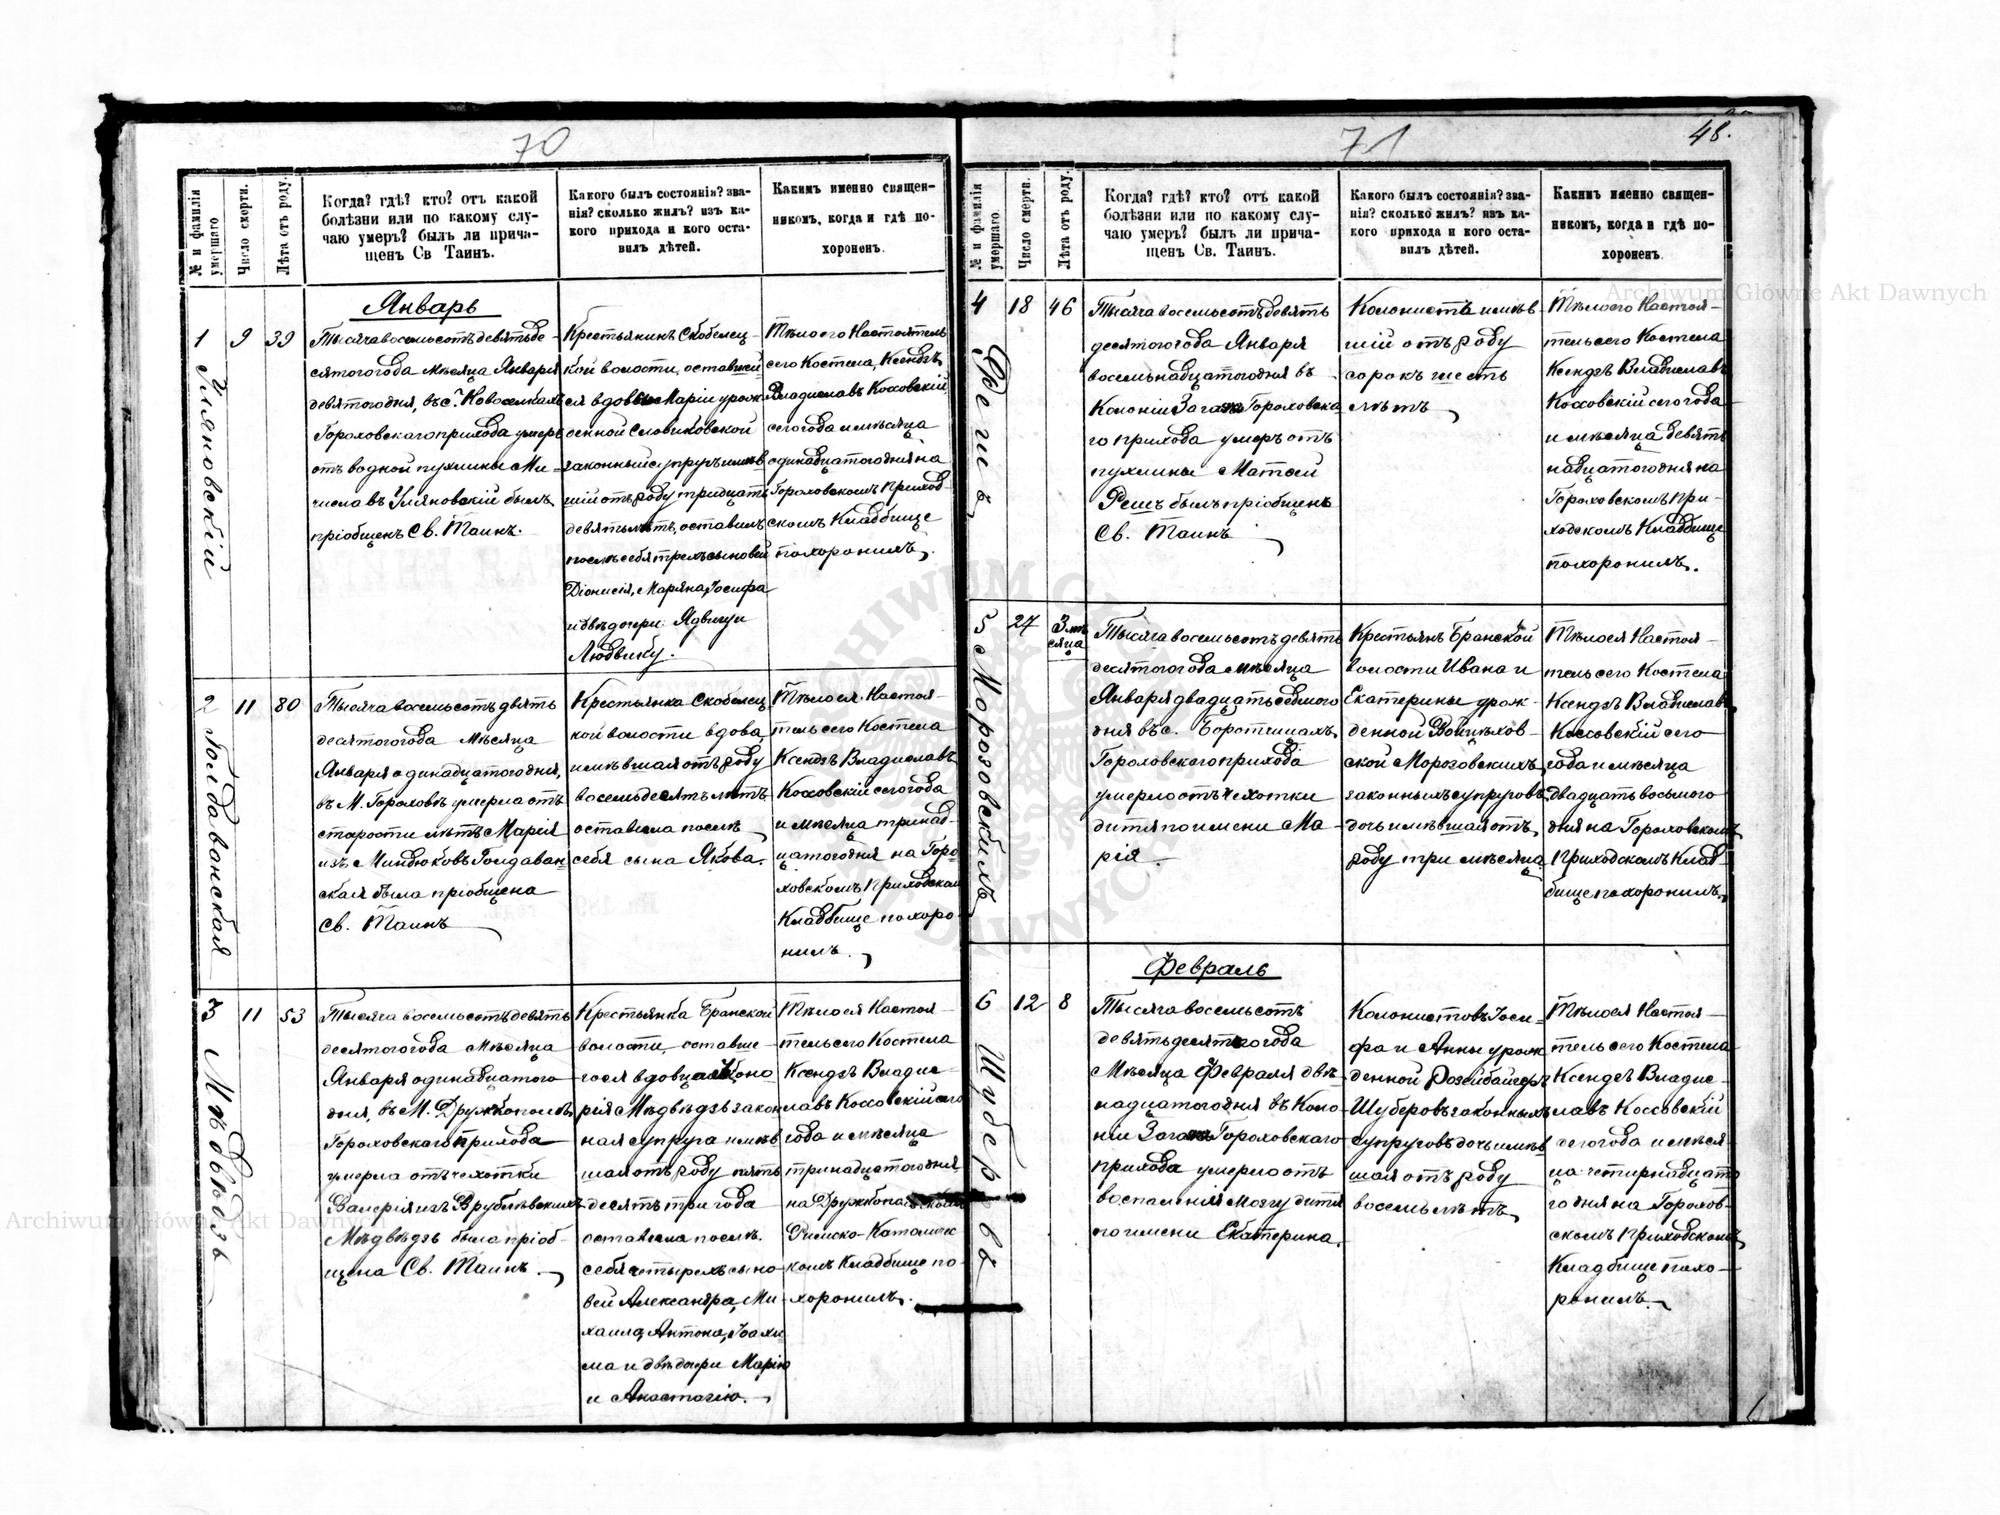 70
№ и фамилія умершаго
Число смерти.
Лѣта отъ роду.
Когда? гдѣ? кто? отъ какой
болѣзни или по какому слу-
чаю умеръ? былъ ли прича-
щенъ Св Таинъ.
Какого былъ состоянія? зва-
нія? сколько жилъ? изъ ка-
кого прихода и кого оста-
вилъ дѣтей.
Какимъ именно священ-
никомъ, когда и гдѣ по-
хороненъ.
Январь
1
9
39
Уляновскій
Тысяча восемьсотъ девятьде-
сятого года мѣсяца Января
девятого дня, въ с. Новоселкахъ
Гороховскаго прихода умеръ
отъ водной пухлины Ми-
числавъ Уляновскій былъ
пріобщенъ Св. Таинъ.
Крестьянинъ Скобелец-
кой волости, оставшей-
ся вдовы Маріи урож-
денной Словиковской
законный супругъ имѣв-
шій отъ роду тридцать
девять лѣтъ, оставилъ
послѣ себя трехъ сыновей
Діонисія, Марьяна, Іосифа
и двѣ дочери Ядвигу и
Людвику.
Тѣло его Настоятель
сего Костела, Ксендзъ
Владиславъ Коссовскій
сего года и мѣсяца
одинадцатого дня на
Гороховскомъ Приход-
скомъ Кладбище
похоронилъ.
2
11
80
Голдаванская
Тысяча восемьсотъ девять
десятого года Мѣсяца
Января одинадцатого дня,
въ М. Гороховѣ умерла отъ
старости лѣтъ Марія
изъ Миндюковъ Голдаван
ская была пріобщена
Св. Таинъ
Крестьянка Скобелец-
кой волости вдова,
имѣвшая отъ роду
восемьдесятъ лѣтъ
оставила послѣ
себя сына Якова.
Тѣло ея Настоя-
тель сего Костела
Ксендзъ Владиславъ
Коссовскій сего года
и мѣсяца тринад-
цатого дня на Горо-
ховскомъ Приходскомъ
Кладбище похоро-
нилъ.
3
11
53
Мѣдвѣдзь
Тысяча восемьсотъ девять
десятого года Мѣсяца
Января одинадцатого
дня, въ М. Дружкополѣ
Гороховскаго прихода
умерла отъ чехотки
Валерія изъ Врублѣвскихъ
Мѣдвѣдзь была пріоб-
щена Св. Таинъ
Крестьянка Бранской
волости, оставше-
гося вдовца
рія Мѣдвѣдзь закон
ная супруга имѣв
шая отъ роду пять
десятъ три года
оставила послѣ
себя четырехъ сыно-
вей Александра, Ми-
хаила, Антона, Іоахи
ма и двѣ дочери Марію
и Анастазію.
Тѣло ея Настоя-
тель сего Костела
Ксендзъ Владис-
лавъ Коссовскій сего
года и мѣсяца
тринадцатого дня
на
Римско-Католичес
комъ Кладбище по-
хоронилъ.
71
48.
№ и фамилія умершаго.
Число смерти.
Лѣта отъ роду.
Когда? гдѣ? кто? отъ какой
болѣзни или по какому слу-
чаю умеръ? былъ ли прича-
щенъ Св. Таинъ.
Какого былъ состоянія? зва-
нія? сколько жилъ? изъ ка-
кого прихода и кого оста-
вилъ дѣтей.
Какимъ именно священ-
никомъ, когда и гдѣ по-
хороненъ.
4
18
46
Тысяча восемьсотъ девять
десятого года Января
восемьнадцатого дня въ
Колоніи Гороховска
го прихода умеръ отъ
пухлины Матвѣй
Решъ былъ пріобщенъ
Св. Таинъ
Колонистъ имѣв
шій отъ роду
сорокъ шесть
лѣтъ
Тѣло его Настоя-
тель сего Костела
Ксендзъ Владиславъ
Коссовскій сего года
и мѣсяца девять
надцатого дня на
Гороховскомъ При-
ходскомъ Кладбище
похоронилъ.
5
27
3 мѣ
сяца
Морозовскихъ
Тысяча восемьсотъ девять
десятого года мѣсяца
Января двадцать седьмого
дня въ с. Боротицахъ,
Гороховскаго прихода
умерло отъ чехотки
дитя по имени Ма-
рія
Крестьянъ Бранской
волости Ивана и
Екатерины урож-
денной Войцѣхов-
ской Морозовскихъ
законныхъ супруговъ
дочь имѣвшая отъ
роду три мѣсяца
Тѣло ея Настоя-
тель сего Костела
Ксендзъ Владиславъ
Коссовскій сего
года и мѣсяца
двадцать восьмого
дня на Гороховскомъ
Приходскомъ Клад-
бище похоронилъ.
Февраль
6
12
8
Шуберовъ
Тысяча восемьсотъ
девятьдесятого года
Мѣсяца Февраля двѣ-
надцатого дня въ Коло-
ніи Гороховскаго
прихода умерло отъ
воспаленія мозгу дитя
по имени Екатерина.
Колонистовъ Іоси-
фа и Анны урож
денной
Шуберовъ законныхъ
супруговъ дочь имѣв
шая отъ роду
восемь лѣтъ
Тѣло ея Настоя-
тель сего Костела
Ксендзъ Владис-
лавъ Коссовскій
сего года и мѣся-
ца четирнадцато
го дня на Горохов-
скомъ Приходскомъ
Кладбище похо-
ронилъ.
Archiwum Główne Akt Dawnych
Archiwum Główne Akt Dawnych